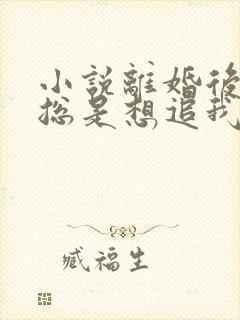 小說離婚後
總是想追我
臧福生